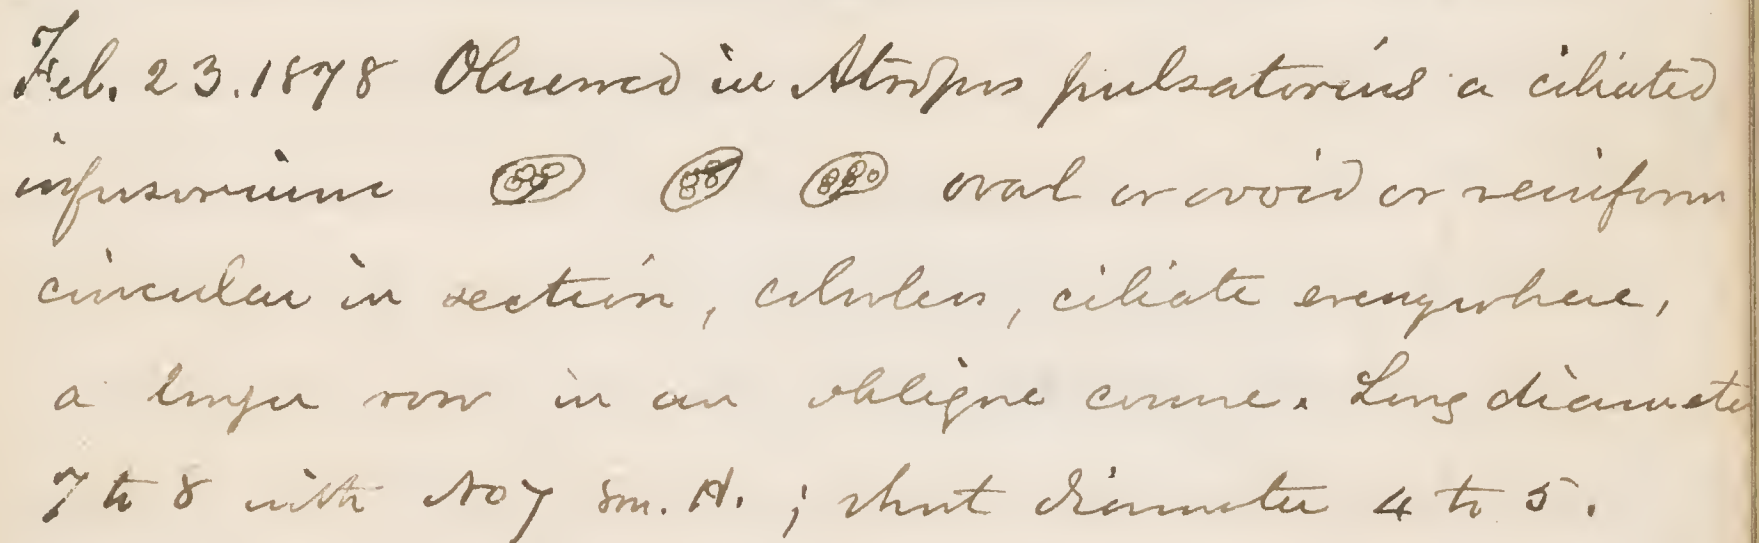 Feb. 23. 1878 Observed in Atropos pulsatorius a ciliated
infusorium oval or ovoid or reniform
circular in section, colorless, ciliate everywhere,
a longer row in an oblique course. Long diameter
7 to 8 with No 7 sm. H. ; short diameter 4 to 5.